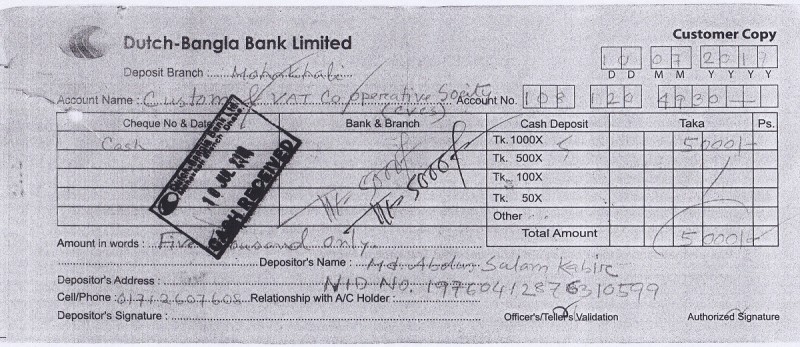 Customer Copy
Dutch-Bangla Bank Limited
10 07 2017
D D M M Y Y Y Y
Deposit Branch : Mohakhali
Account Name : Custom & VAT Co-operative Society Account No. 108 120 4930
(CVCS)
Cheque No & Date Bank & Branch Cash Deposit Taka Ps.
Cash Tk. 1000X 5 5000/-
Tk. 500X
Tk. 100X
Tk. 50X
Other
Total Amount 5000/-
TK 5000/-
TK 5000/-
Dutch-Bangla Bank Ltd.
10 JUL
CASH RECEIVED
Amount in words : Five thousand only.
Depositor's Name : Md. Abdus Salam Kabir
Depositor's Address : NID NO.
Cell/Phone : 01712607608 Relationship with A/C Holder :
Depositor's Signature : Officer's/Teller's Validation Authorized Signature